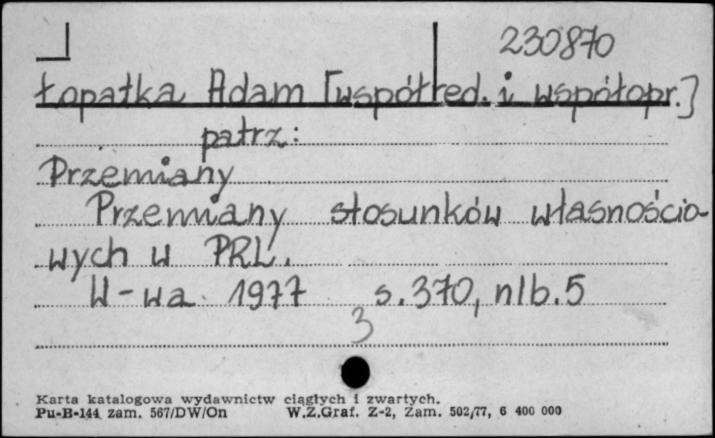 230870
Łopatka Adam [współred. i współopr.]
patrz:
Przemiany
Przemiany stosunków własnościo-
wych w PRL.
W-wa 1977 s. 370, nlb. 5
3
Karta katalogowa wydawnictw ciągłych i zwartych.
Pu-B-144 zam. 567/DW/On W.Z.Graf. Z-2, Zam. 502/77, 6 400 000